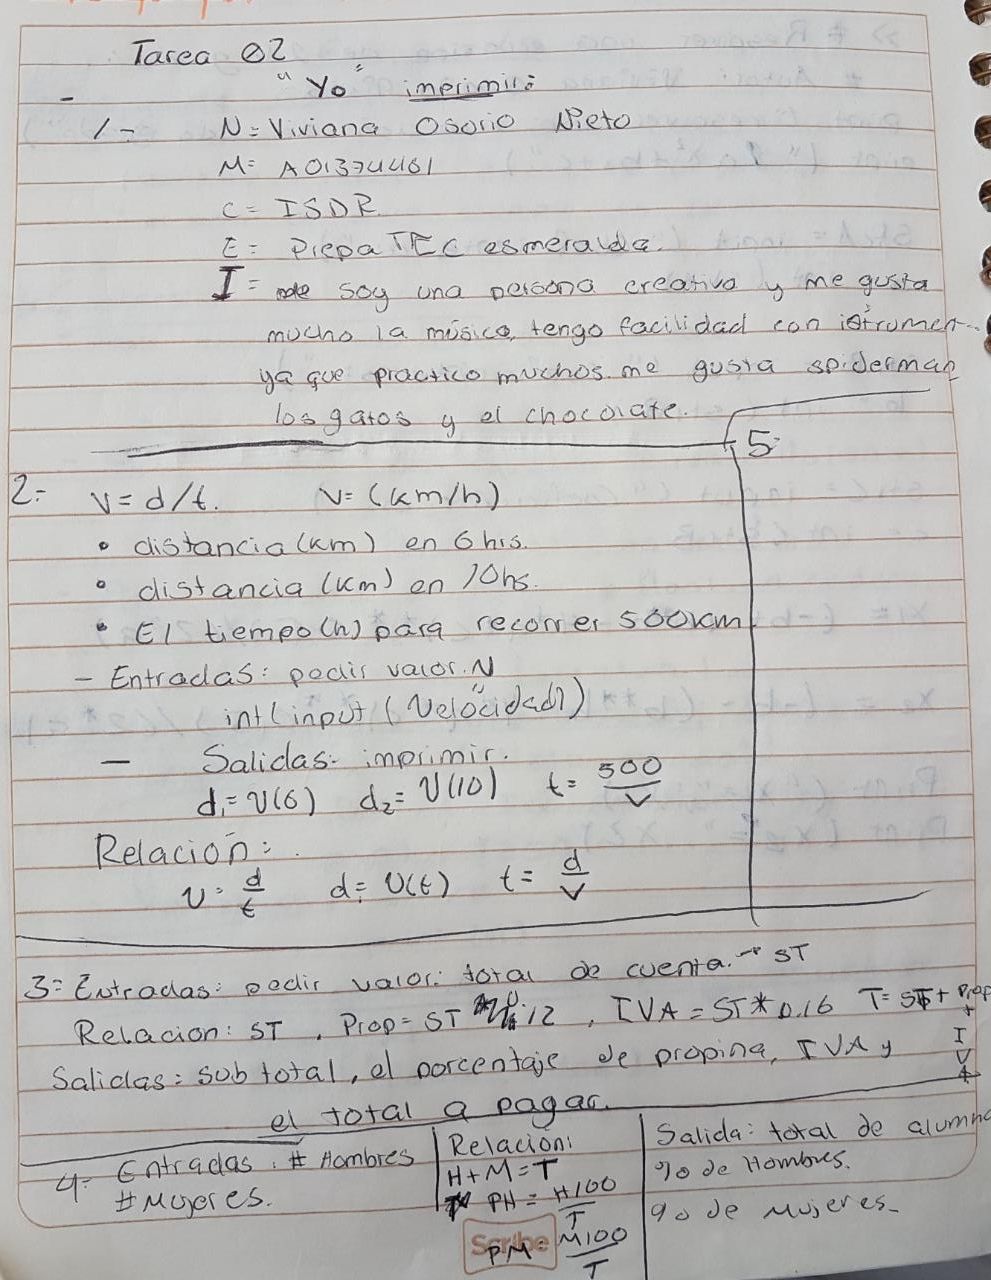 Tarea 02
"Yo" imprimir:
1- N= Viviana Osorio Nieto
M= A01374461
C= ISDR
E= Prepa TEC esmeralda.
I= soy una persona creativa y me gusta
mucho la música, tengo facilidad con istrumen..
ya que practico muchos. me gusta spiderman
los gatos y el chocolate.
5-
2- V= d/t. V= (km/h)
• distancia (km) en 6 hrs.
• distancia (km) en 10hs.
• El tiempo (h) para recorrer 500km
- Entradas: pedir valor. N
int(input("Velocidad"))
- Salidas: imprimir.
d₁= V(6) d₂= V(10) t= 500/V
Relación:
V= d/t d= V(t) t= d/V
3- Entradas: pedir valor: total de cuenta. → ST
Relacion: ST, Prop= ST .12, IVA = ST*0.16 T= ST+ Prop + IVA
Salidas: subtotal, el porcentaje de propina, IVA y
el total a pagar.
4- Entradas: # Hombres
# Mujeres.
Relacion:
H+M=T
PH = H100/T
PM= M100/T
Salida: total de alumno
% de Hombres.
% de Mujeres-
Scribe